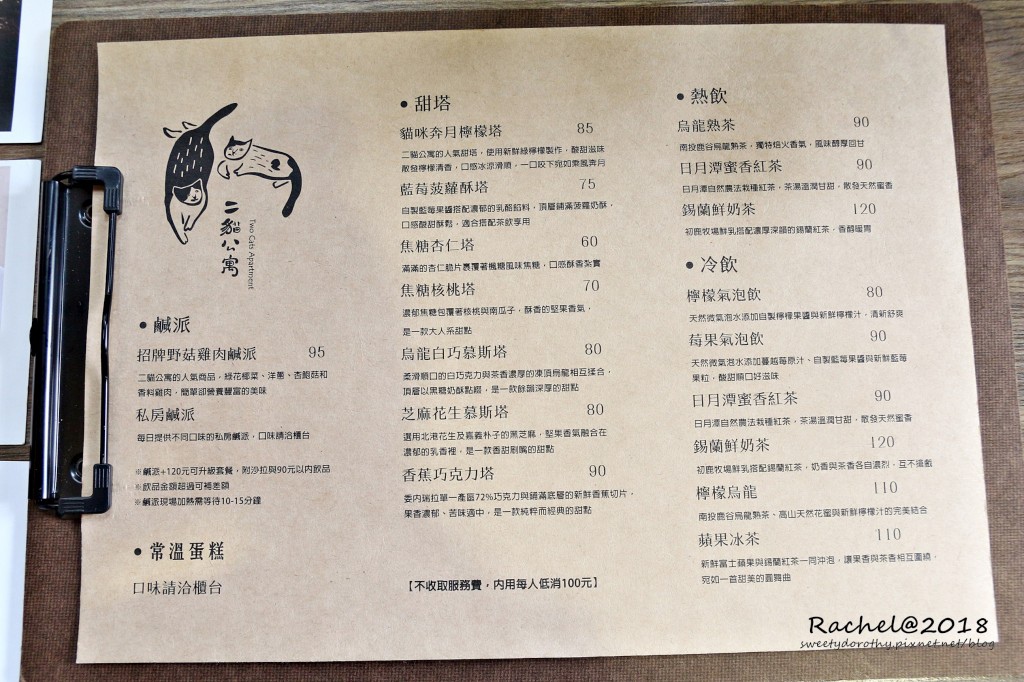 二貓公寓
Two Cats Apartment
• 鹹派
招牌野菇雞肉鹹派 95
二貓公寓的人氣商品，綠花椰菜、洋蔥、杏鮑菇和
香料雞肉，簡單卻營養豐富的美味
私房鹹派
每日提供不同口味的私房鹹派，口味請洽櫃台
※鹹派+120元可升級套餐，附沙拉與90元以內飲品
※飲品金額超過可補差額
※鹹派現場加熱需等待10-15分鐘
• 常溫蛋糕
口味請洽櫃台
• 甜塔
貓咪奔月檸檬塔 85
二貓公寓的人氣甜塔，使用新鮮綠檸檬製作，酸甜滋味
散發檸檬清香，口感冰涼滑順，一口咬下宛如乘風奔月
藍莓菠蘿酥塔 75
自製藍莓果醬搭配濃郁的乳酪餡料，頂層鋪滿菠蘿奶酥，
口感酸甜酥鬆，適合搭配茶飲享用
焦糖杏仁塔 60
滿滿的杏仁脆片裹覆著楓糖風味焦糖，口感酥香紮實
焦糖核桃塔 70
濃郁焦糖包覆著核桃與南瓜子，酥香的堅果香氣，
是一款大人系甜點
烏龍白巧慕斯塔 80
柔滑順口的白巧克力與茶香濃厚的凍頂烏龍相互揉合，
頂層以黑糖奶酥點綴，是一款餘韻深厚的甜點
芝麻花生慕斯塔 80
選用北港花生及嘉義朴子的黑芝麻，堅果香氣融合在
濃郁的乳香裡，是一款香甜刷嘴的甜點
香蕉巧克力塔 90
委內瑞拉單一產區72%巧克力與鋪滿底層的新鮮香蕉切片，
果香濃郁、苦味適中，是一款純粹而經典的甜點
【不收取服務費，內用每人低消100元】
• 熱飲
烏龍熟茶 90
南投鹿谷烏龍熟茶，獨特焙火香氣，風味醇厚回甘
日月潭蜜香紅茶 90
日月潭自然農法栽種紅茶，茶湯溫潤甘甜，散發天然蜜香
錫蘭鮮奶茶 120
初鹿牧場鮮乳搭配濃厚深韻的錫蘭紅茶，香醇暖胃
• 冷飲
檸檬氣泡飲 80
天然微氣泡水添加自製檸檬果醬與新鮮檸檬汁，清新舒爽
莓果氣泡飲 90
天然微氣泡水添加蔓越莓原汁、自製藍莓果醬與新鮮藍莓
果粒，酸甜順口好滋味
日月潭蜜香紅茶 90
日月潭自然農法栽種紅茶，茶湯溫潤甘甜，散發天然蜜香
錫蘭鮮奶茶 120
初鹿牧場鮮乳搭配錫蘭紅茶，奶香與茶香各自濃烈，互不搶戲
檸檬烏龍 110
南投鹿谷烏龍熟茶、高山天然花蜜與新鮮檸檬汁的完美結合
蘋果冰茶 110
新鮮富士蘋果與錫蘭紅茶一同沖泡，讓果香與茶香相互圍繞，
宛如一首甜美的圓舞曲
Rachel@2018
sweetydorothy.pixnet.net/blog